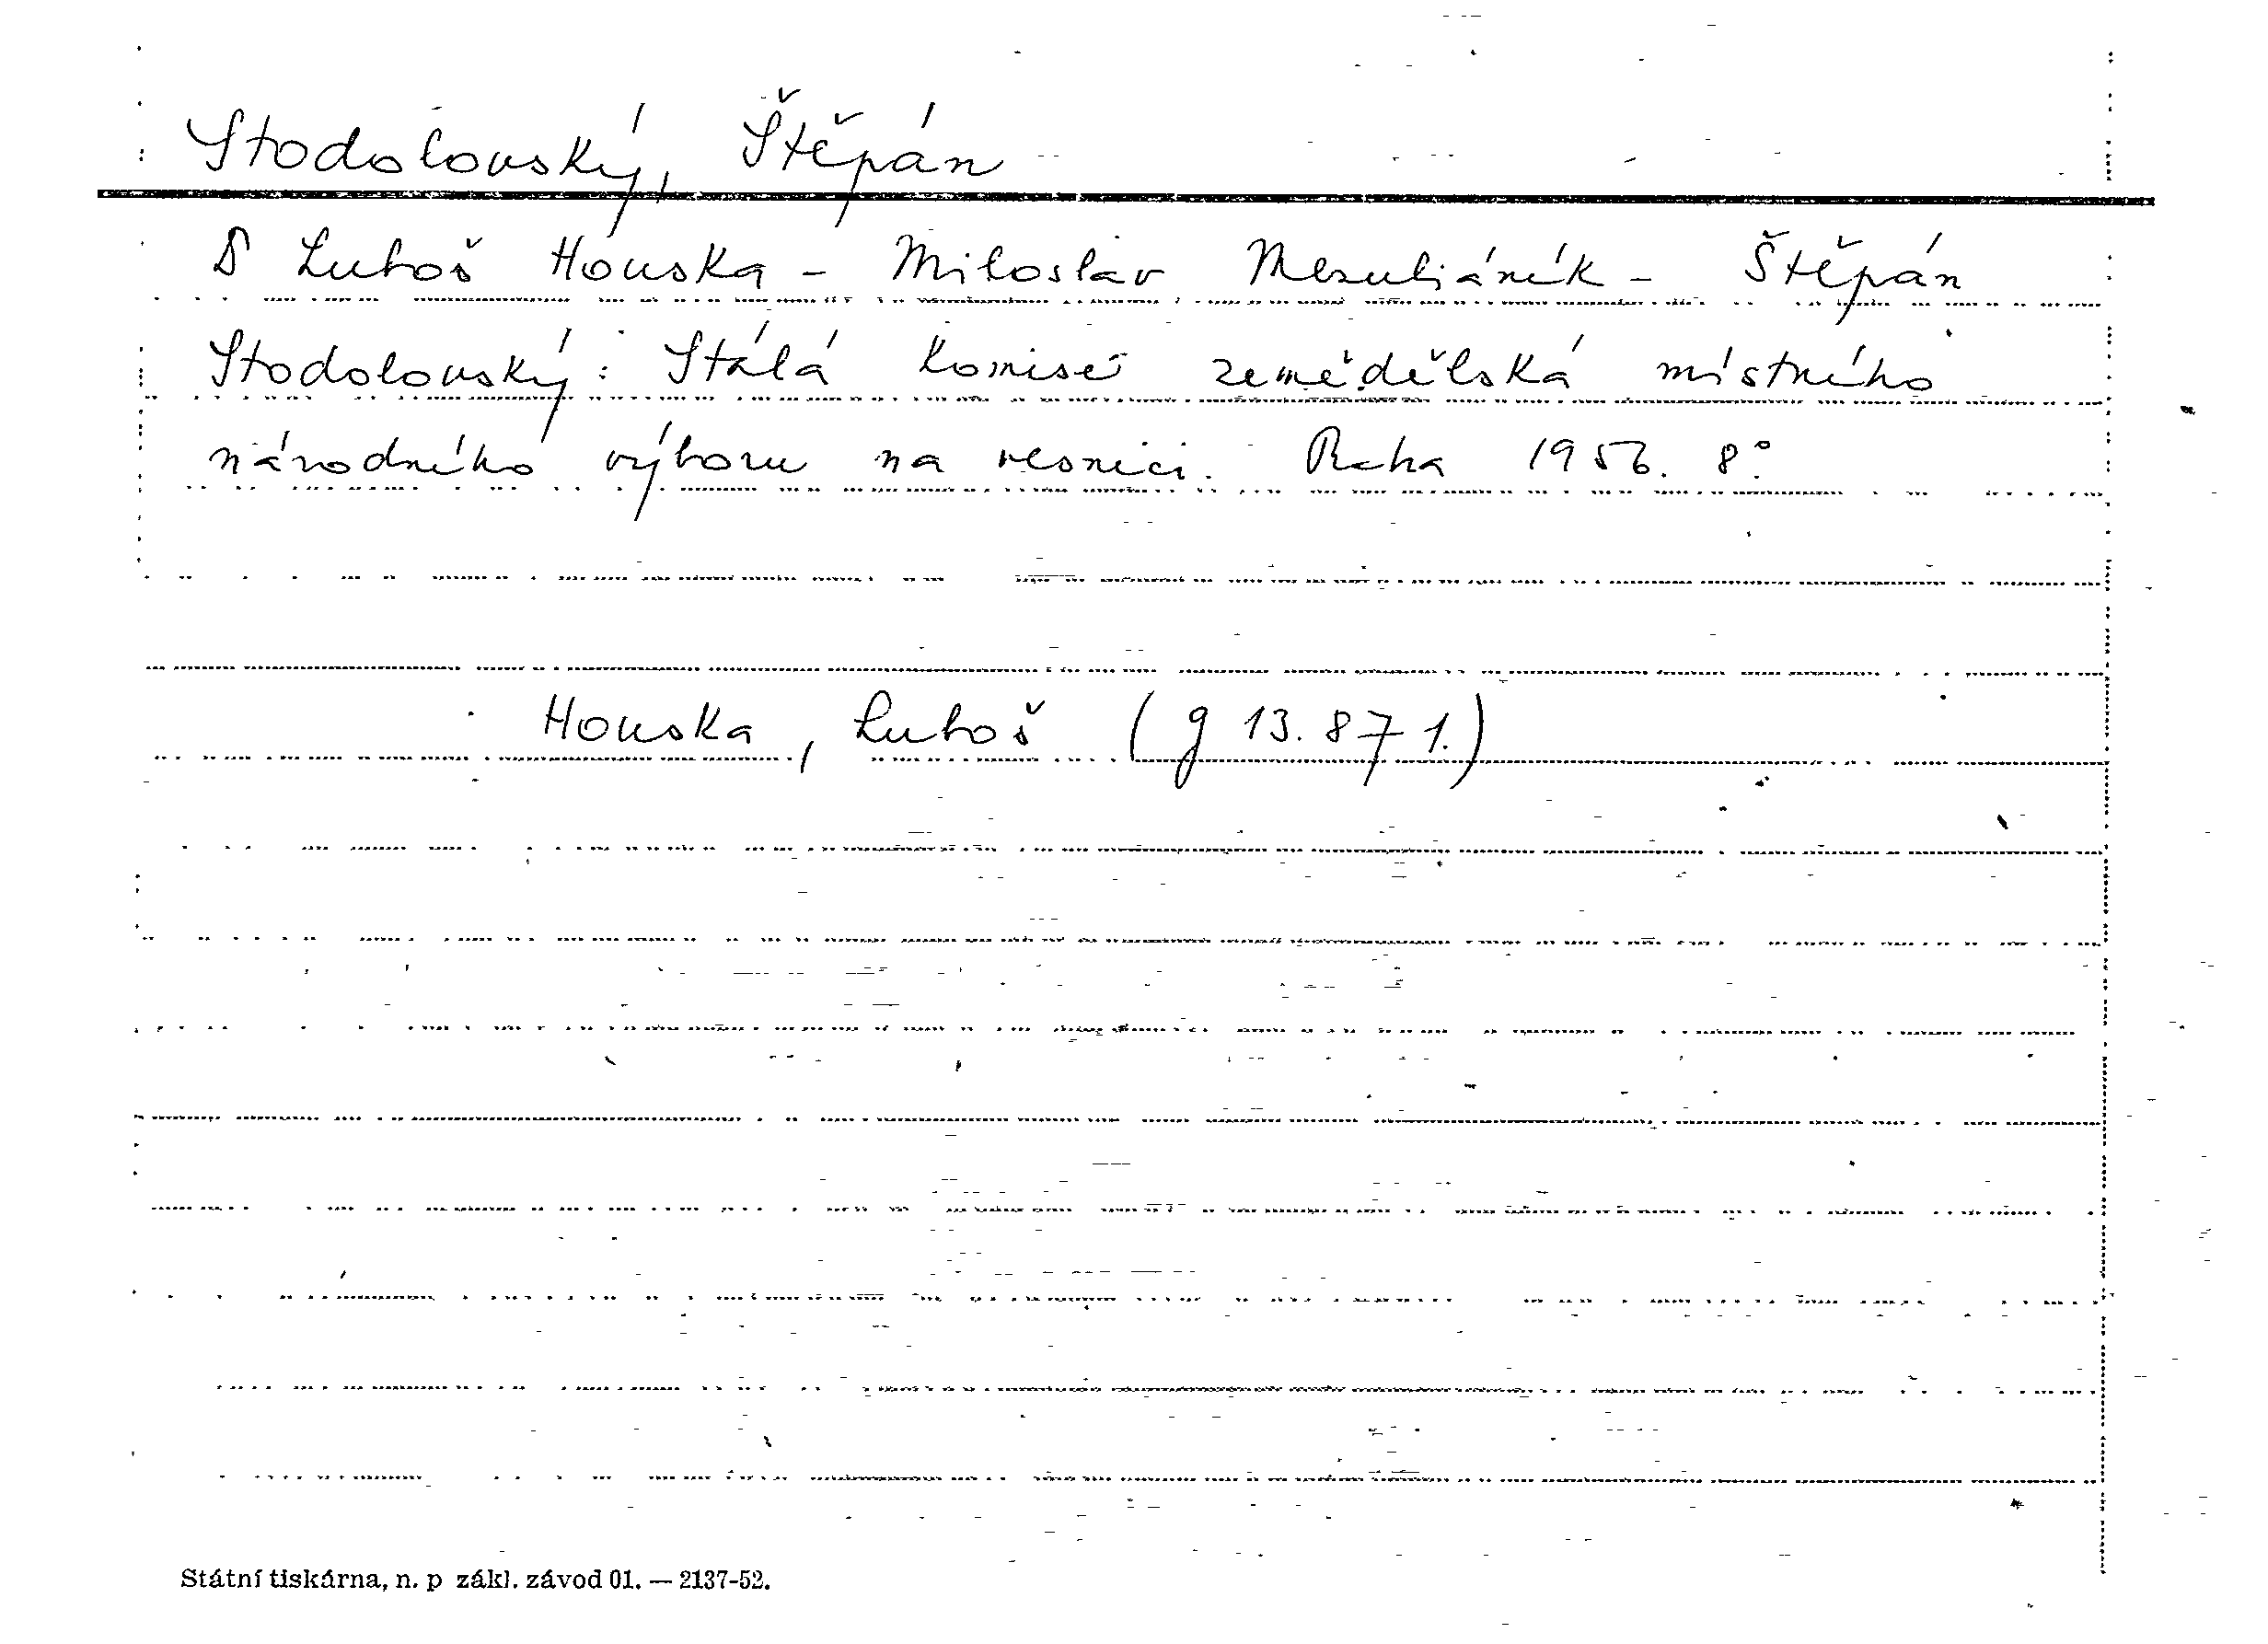 Stodolovský, Štěpán
Luboš Houska - Miloslav Mezuliáník - Štěpán
Stodolovský: Stálá komise zemědělská místního
národního výboru na vesnici. Praha 1956. 8°.
Houska, Luboš (g 13.871.)
Státní tiskárna, n. p zákl. závod 01. — 2137-52.